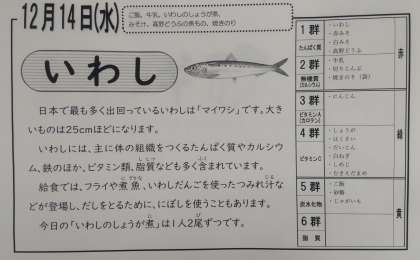 12月14日(水)
ご飯、牛乳、いわしのしょうが煮、
みそ汁、高野どうふの煮もの、焼きのり
いわし
日本で最も多く出回っているいわしは「マイワシ」です。大き
いものは25cmほどになります。
いわしには、主に体の組織をつくるたんぱく質やカルシウ
ム、鉄のほか、ビタミン類、脂質なども多く含まれています。
給食では、フライや煮魚、いわしだんごを使ったつみれ汁な
どが登場し、だしをとるために、にぼしを使うこともあります。
今日の「いわしのしょうが煮」は1人2尾ずつです。
1群
たんぱく質
・いわし
・赤みそ
・白みそ
・高野どうふ
2群
無機質
(カルシウム)
・牛乳
・切りこんぶ
・焼きのり(袋)
赤
3群
ビタミンA
(カロテン)
・にんじん
4群
ビタミンC
・しょうが
・はくさい
・だいこん
・白ねぎ
・しめじ
・むきえだまめ
緑
5群
炭水化物
・ご飯
・砂糖
・じゃがいも
6群
脂質
黄